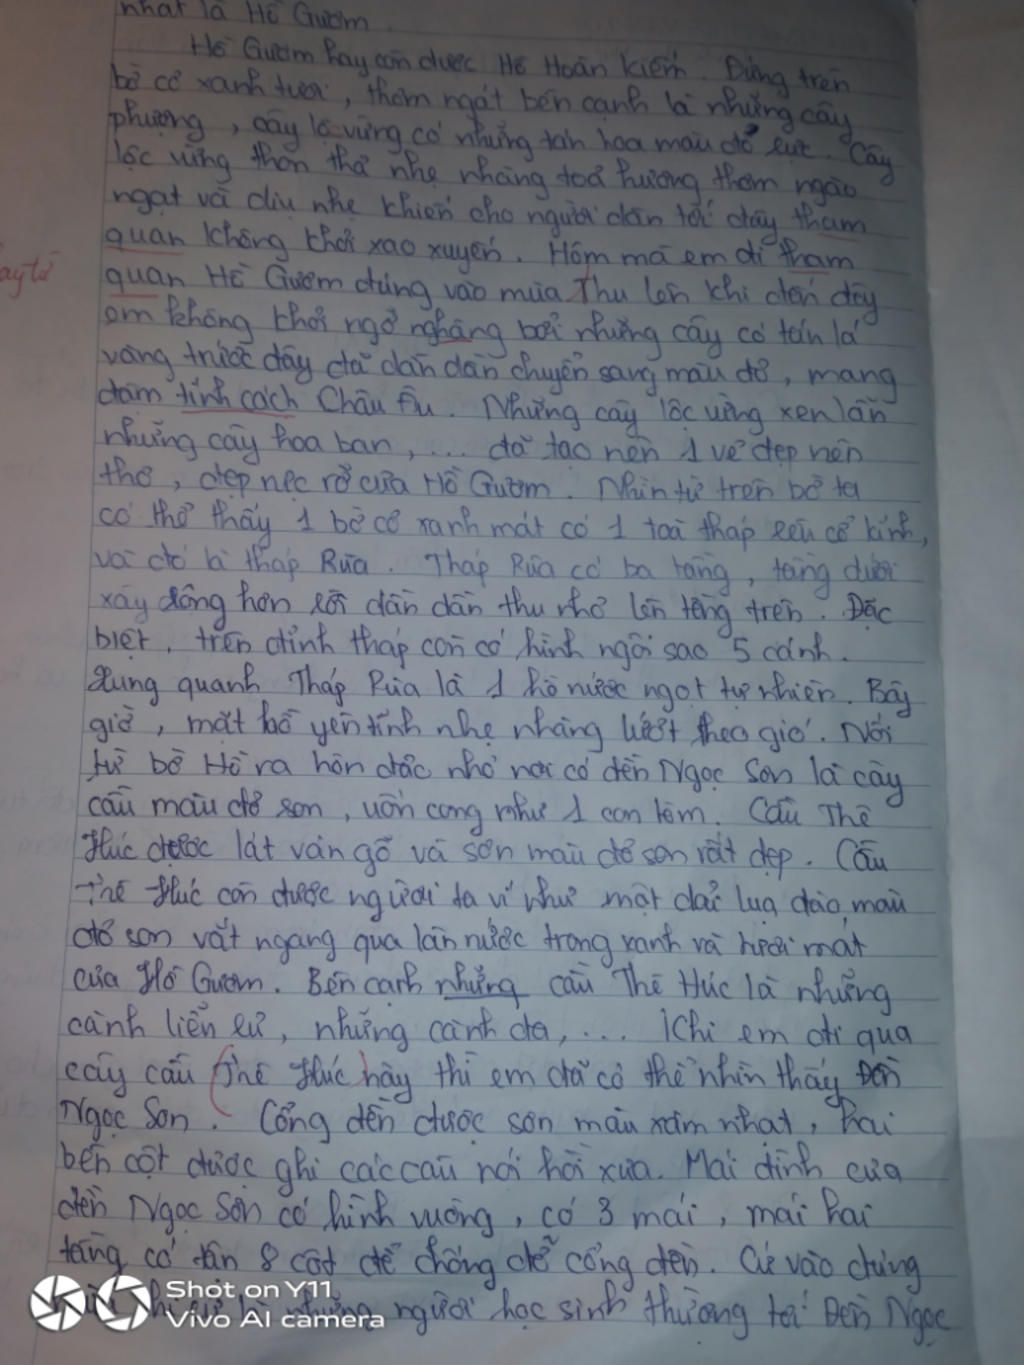 nhất là Hồ Gươm.
Hồ Gươm hay còn được Hồ Hoàn Kiếm. Đứng trên
bờ cỏ xanh tươi, thơm ngát bên cạnh là những cây
phượng, cây lộc vừng có những tán hoa màu đỏ rực. Cây
lộc vừng thon thả nhẹ nhàng toả hương thơm ngào
ngạt và dịu nhẹ khiến cho người dân tới đây tham
quan không khỏi xao xuyến. Hôm mà em đi tham
ay từ
quan Hồ Gươm đúng vào mùa Thu lên khi đến đây
em không khỏi ngỡ nghàng bởi những cây có tán lá
vàng trước đây đã dần dần chuyển sang màu đỏ, mang
đậm tính cách Châu Âu. Những cây lộc vừng xen lẫn
những cây hoa ban, ... đã tạo nên 1 vẻ đẹp nên
thơ, đẹp nực rỡ của Hồ Gươm. Nhìn từ trên bờ ta
có thể thấy 1 bờ cỏ xanh mát có 1 toà tháp rêu cổ kính,
và đó là tháp Rùa. Tháp Rùa có ba tầng, tầng dưới
xây rộng hơn rồi dần dần thu nhỏ lên tầng trên. Đặc
biệt, trên đỉnh tháp còn có hình ngôi sao 5 cánh.
Xung quanh Tháp Rùa là 1 hồ nước ngọt tự nhiên. Bây
giờ, mặt hồ yên tĩnh nhẹ nhàng lướt theo gió. Nối
từ bờ Hồ ra hòn đảo nhỏ nơi có đền Ngọc Sơn là cây
cầu màu đỏ son, uốn cong như 1 con tôm. Cầu Thê
Húc được lát ván gỗ và sơn màu đỏ son rất đẹp. Cầu
Thê Húc còn được người ta ví như một dải lụa đào màu
đỏ son vắt ngang qua làn nước trong xanh và tươi mát
của Hồ Gươm. Bên cạnh những cầu Thê Húc là những
cành liễu rủ, những cành đa, ... Khi em đi qua
cây cầu Thê Húc này thì em đã có thể nhìn thấy Đền
Ngọc Sơn. Cổng đền được sơn màu xám nhạt, hai
bên cột được ghi các câu nói hồi xưa. Mái đình của
đền Ngọc Sơn có hình vuông, có 3 mái, mái hai
tầng có tận 8 cột để chống đỡ cổng đền. Cứ vào đúng
những người học sinh thường tới Đền Ngọc
Shot on Y11
Vivo AI camera